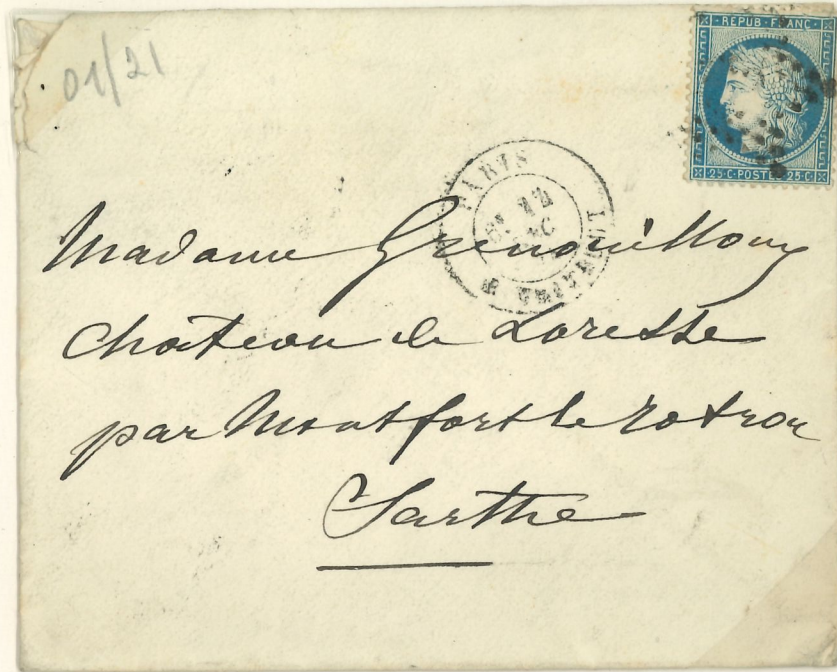 01/21
REPUB·FRANC·
25·C·POSTES·25·C
PARIS
12
Madame
Château de Loresse
par Montfort le Rotrou
Sarthe